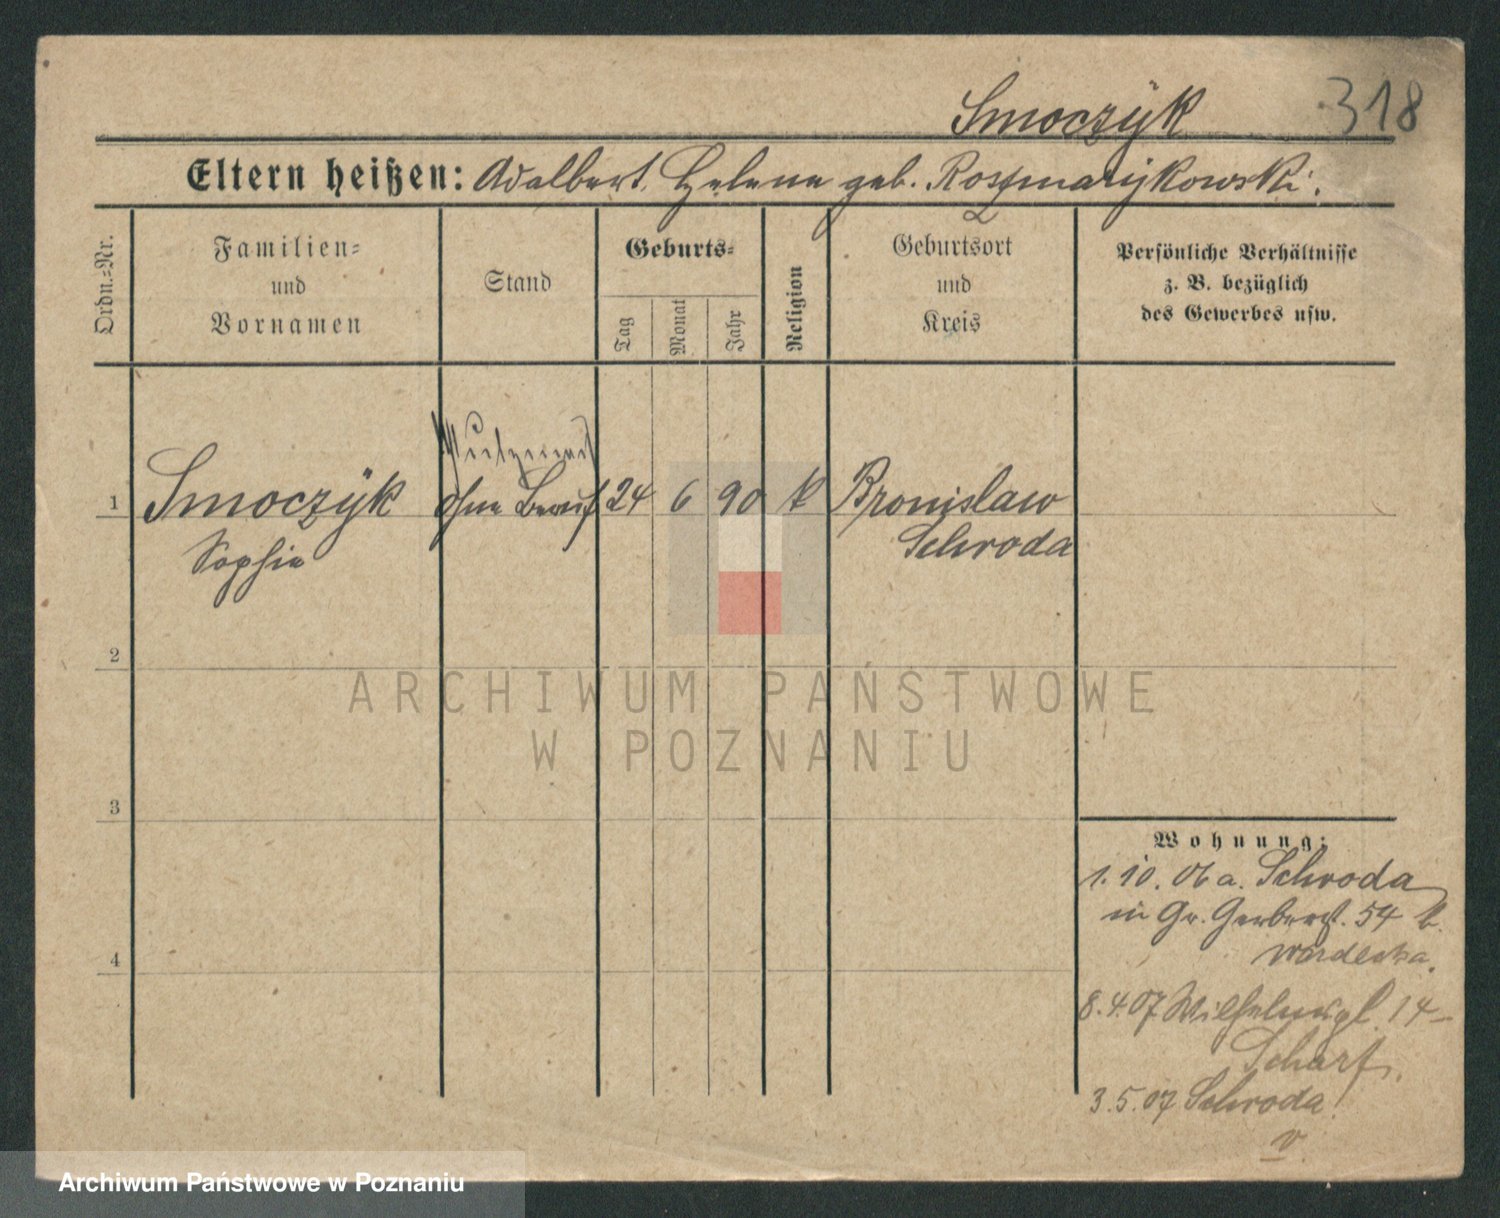 Smoczÿk
318
Eltern heißen: Adalbert, Helene geb.
Ordn.=Nr.
Familien=
und
Vornamen
Stand
Geburts=
Tag
Monat
Jahr
Religion
Geburtsort
und
Kreis
Persönliche Verhältnisse
z. B. bezüglich
des Gewerbes usw.
1 Smoczÿk ohne Beruf 24 6 90 k Bronislaw
Sophie Schroda
2
3
4
ARCHIWUM PAŃSTWOWE
W POZNANIU
Wohnung:
1. 10. 06 a. Schroda
in Gr. Gerberst. 54 b.
8.4.07 Wilhelmspl. 14
Scharf.
3.5.07 Schroda
v
Archiwum Państwowe w Poznaniu